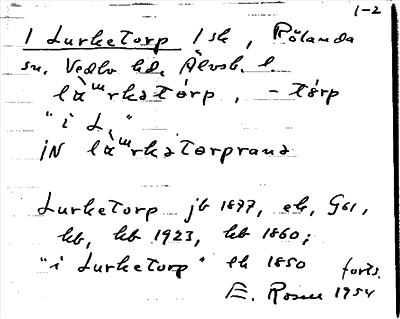 1-2
1 Lurketorp 1 sk, Rölanda
sn. Vedbo hd. Älvsb. l.
lα̈‴rkətórp, -tórp
"i L."
iN lα̈‴rkətorpranə
Lurketorp jb 1877, ek, GS1,
kb, hb 1923, kb 1860;
"i Lurketorp" ek 1850 forts.
E. Rosell 1954